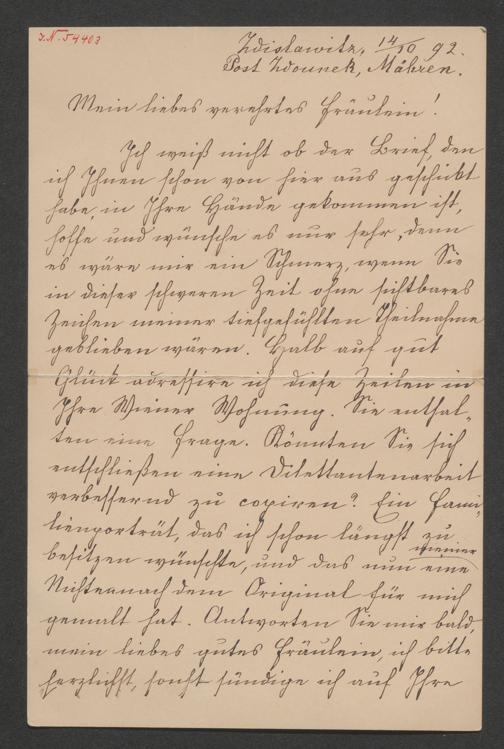 I.N. 54403
Zdislawitz, 14/10 92.
Post Zdounek, Mähren.
Mein liebes verehrtes Fräulein!
Ich weiß nicht ob der Brief, den
ich Ihnen schon von hier aus geschickt
habe, in Ihre Hände gekommen ist,
hoffe und wünsche es nur sehr, denn
es wäre mir ein Schmerz, wenn Sie
in dieser schweren Zeit ohne sichtbares
Zeichen meiner tiefgefühlten Theilnahme
geblieben wären. Halb auf gut
Glück adressire ich diese Zeilen in
Ihre Wiener Wohnung. Sie enthal-
ten eine Frage. Könnten Sie sich
entschließen eine Dilettantenarbeit
verbessernd zu copiren? Ein Fami-
lienporträt, das ich schon längst zu
besitzen wünschte, und das nun eine
meiner
Nichten nach dem Original für mich
gemalt hat. Antworten Sie mir bald,
mein liebes gutes Fräulein, ich bitte
herzlichst, sonst sündige ich auf Ihre